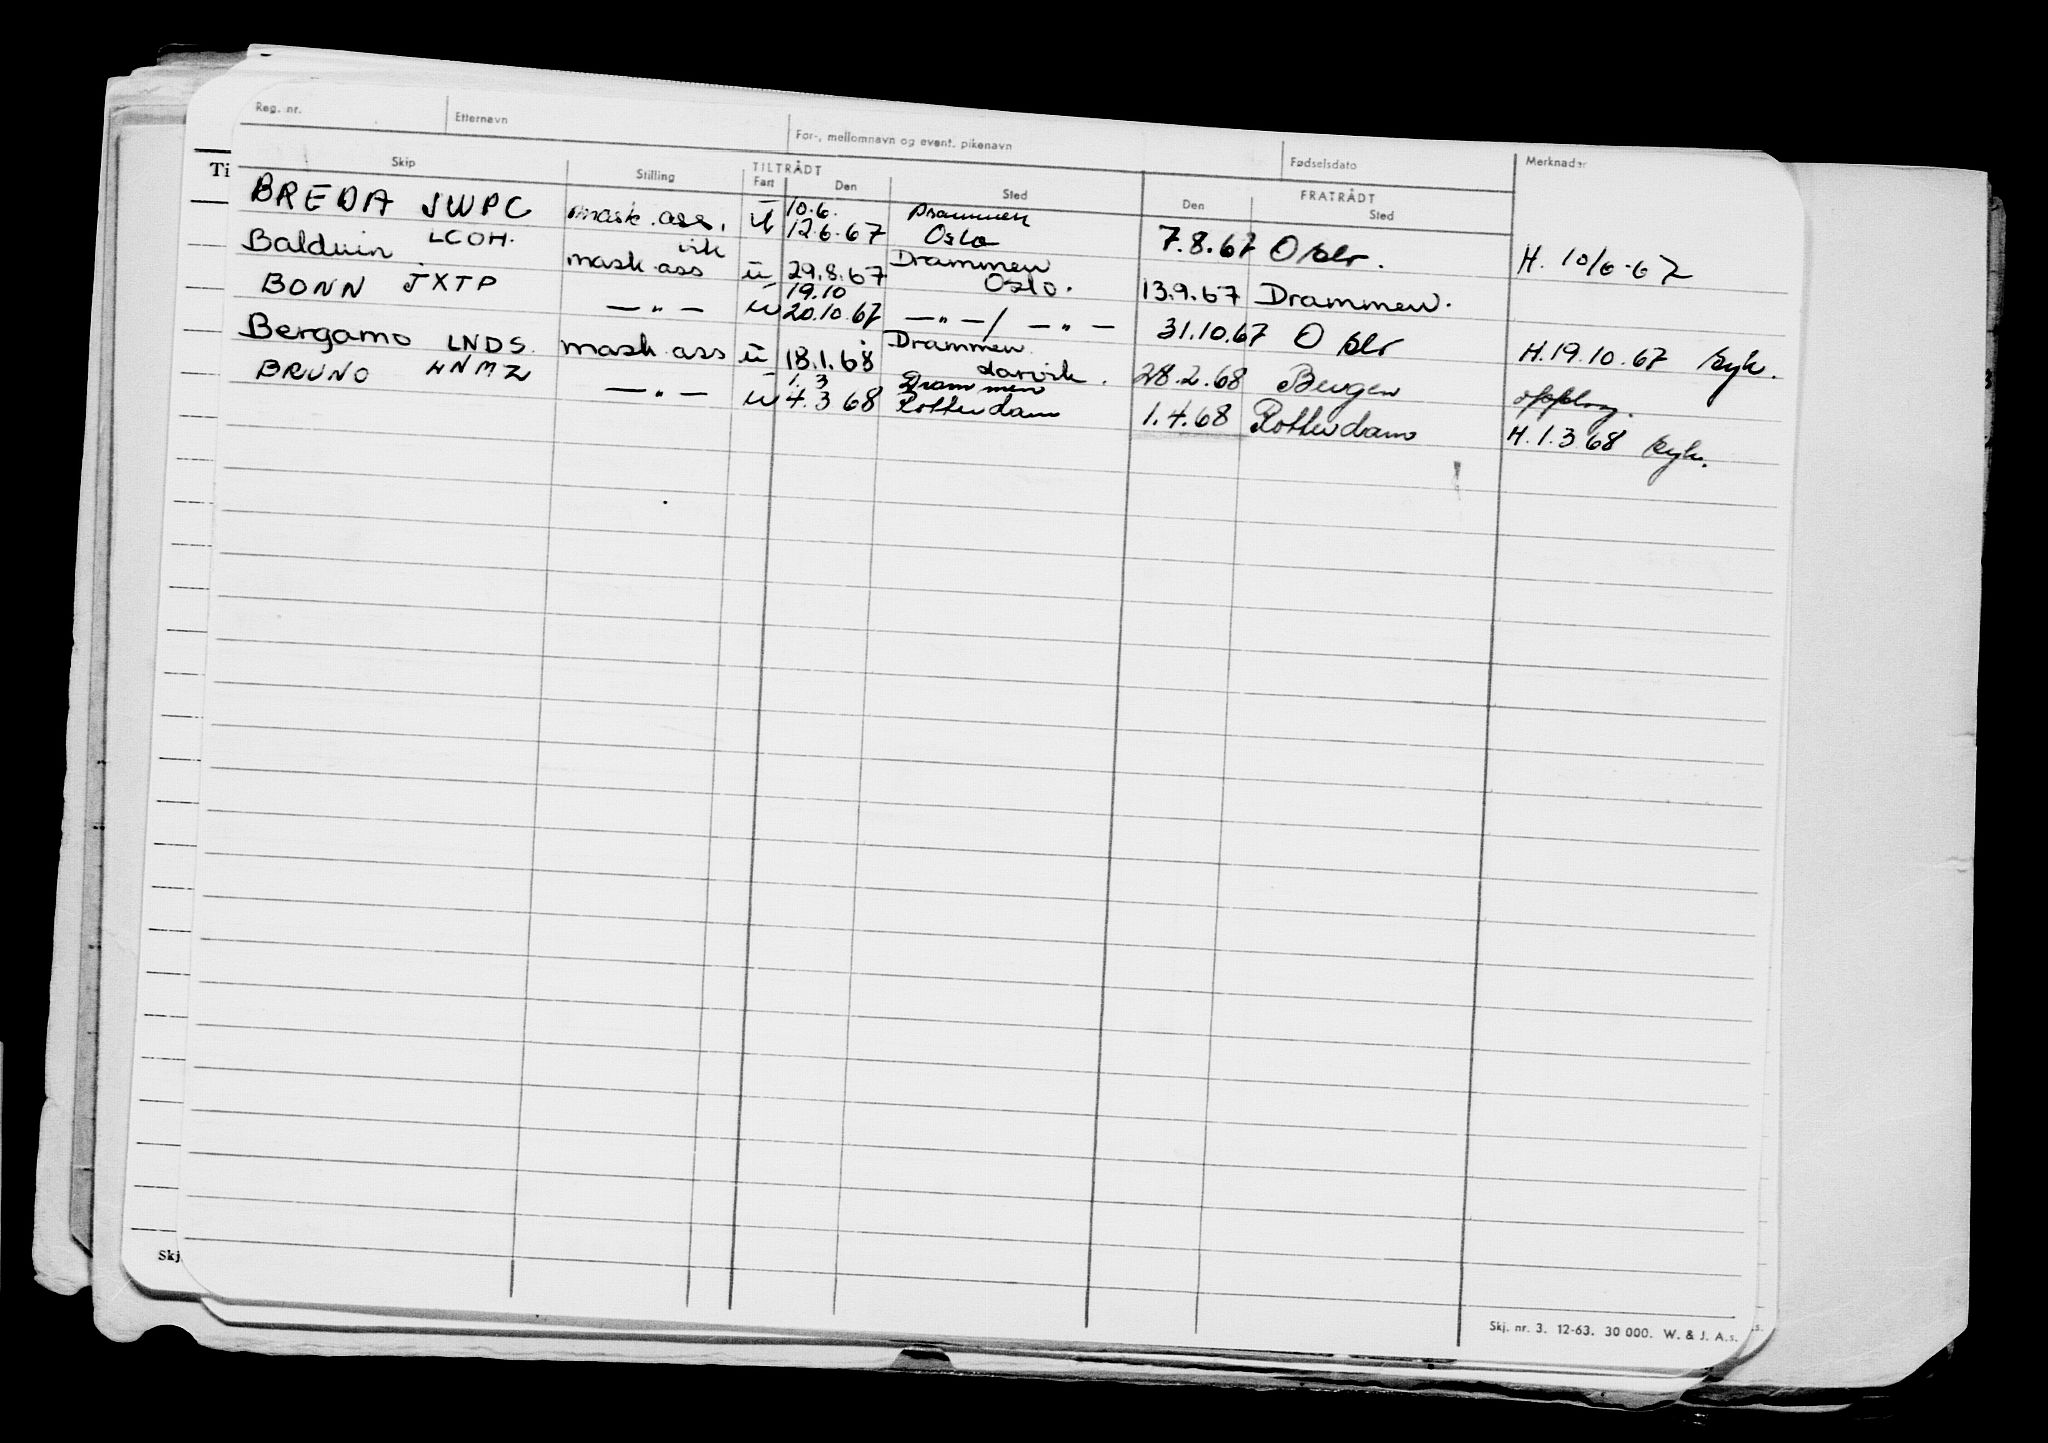 Reg. nr. Etternavn For-, mellomnavn og event. pikenavn Fødselsdato Merknader
Ti
Skip Stilling TILTRÅDT FRATRÅDT
Fart Den Sted Den Sted
BREDA JWPC mask. ass. u 10.6. 12.6.67 Drammen Oslo 7.8.67 Oslo. H. 10/6-67
Balduin LCOH. vik mask ass u 29.8.67 Drammen Oslo. 13.9.67 Drammen.
BONN JXTP — " — u 19.10 20.10.67 — " — / — " — 31.10.67 Oslo H.19.10.67 syk.
Bergamo LNDS. mask ass u 18.1.68 Drammen Larvik. 28.2.68 Bergen opplag.
BRUNO HNMZ — " — u 1.3 4.3 68 Drammen Rotterdam 1.4.68 Rotterdam H.1.3 68 syk.
Skj.
Skj. nr. 3. 12-63. 30 000. W. & J. A.s.